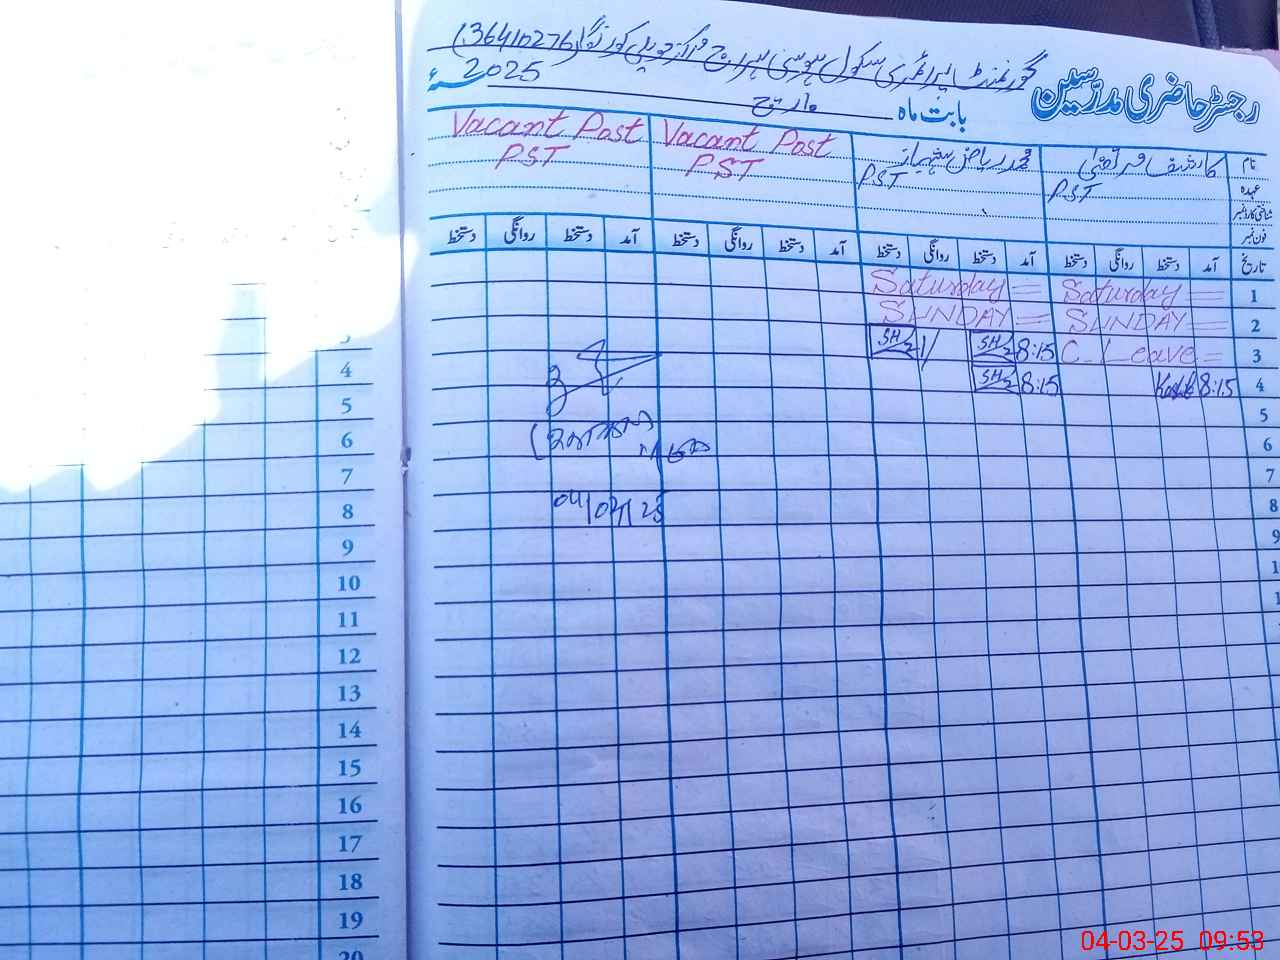 گورنمنٹ پرائمری سکول (36410276)
رجسٹر حاضری مدرسین
بابت ماہ مارچ 2025ء
نام کاشف مرتضیٰ محمد ریاض شہباز Vacant Post Vacant Post
عہدہ PST PST PST PST
شناختی کارڈ نمبر
فون نمبر
تاریخ آمد دستخط روانگی دستخط آمد دستخط روانگی دستخط آمد دستخط روانگی دستخط آمد دستخط روانگی دستخط
1 Saturday = Saturday =
2 SUNDAY = SUNDAY =
3 C. Leave = 8:15 SH SH
4 8:15 Kashif 8:15 SH
5
6
7
8
04/03/25
9
4
5
6
7
8
9
10
11
12
13
14
15
16
17
18
19
20
04-03-25 09:53